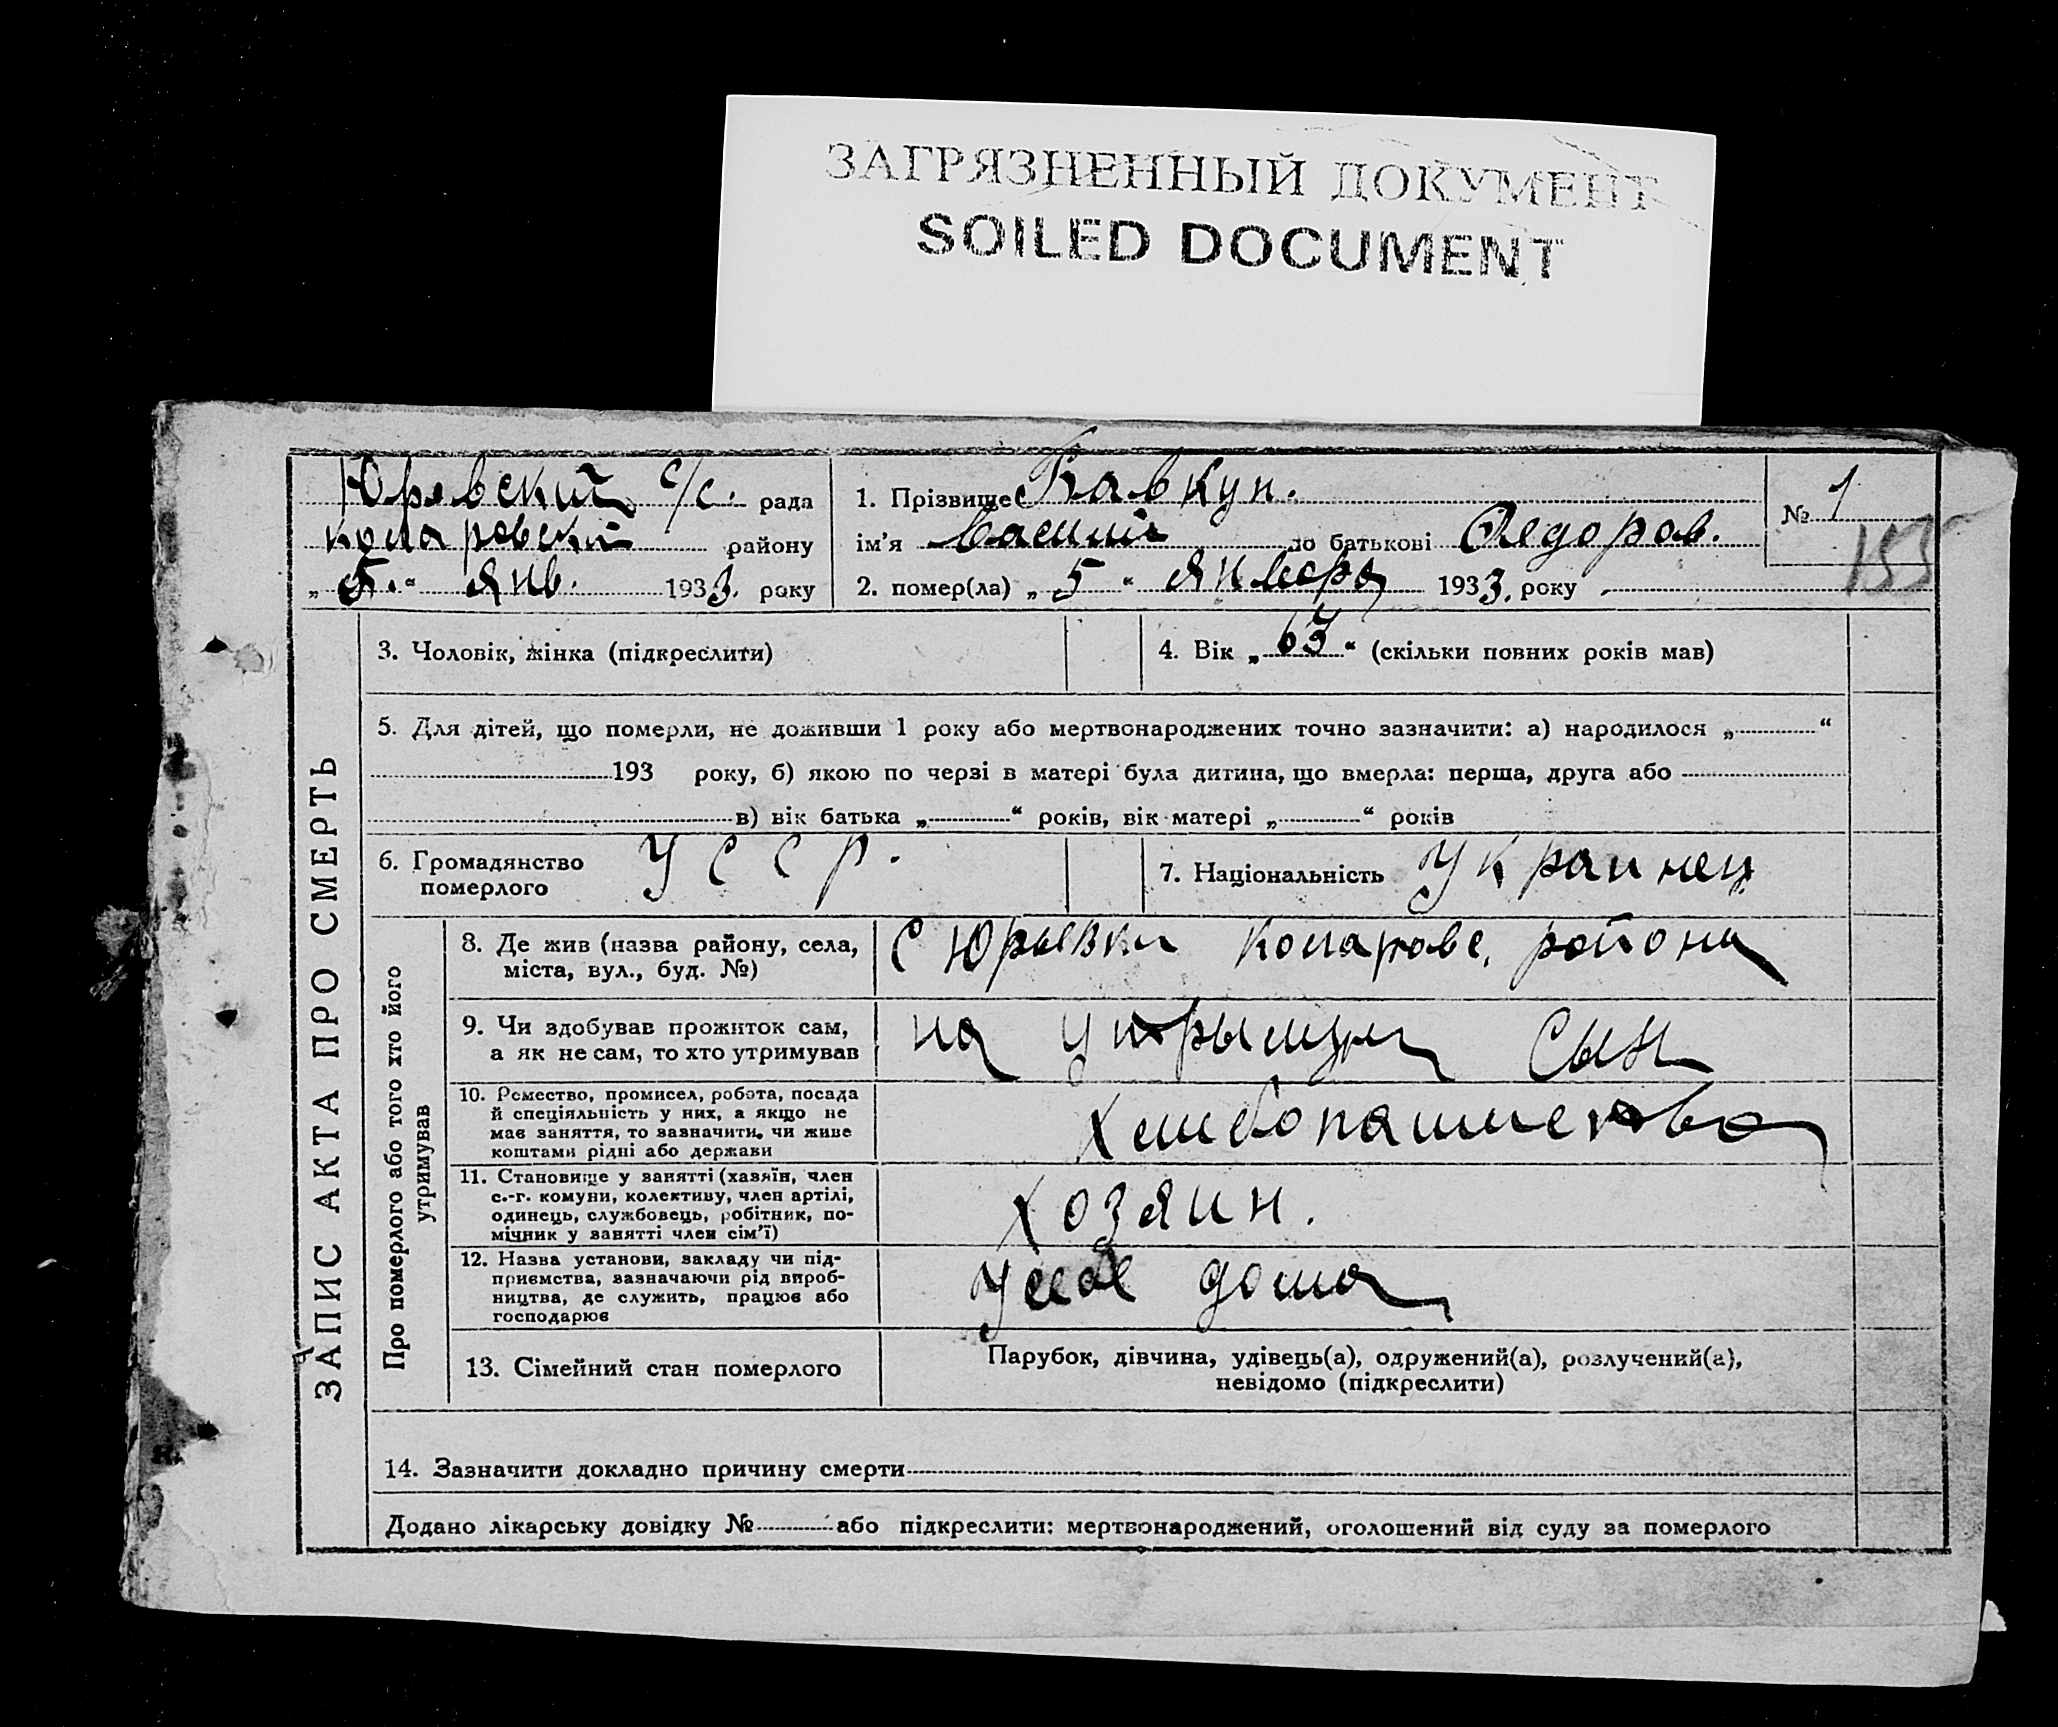 ЗАГРЯЗНЕННЫЙ ДОКУМЕНТ
SOILED DOCUMENT
Юрьевский с/с. рада
района
„5.“ Янв. 1933. року
1. Прізвище Кавкун.
ім'я Василий по батькові Федоров.
2. помер(ла) „5“ Января 1933. року
№ 1
155
ЗАПИС АКТА ПРО СМЕРТЬ
3. Чоловік, жінка (підкреслити)
4. Вік „63“ (скільки повних років мав)
5. Для дітей, що померли, не доживши 1 року або мертвонароджених точно зазначити: а) народилося „ “
193 року, б) якою по черзі в матері була дитина, що вмерла: перша, друга або
в) вік батька „ “ років, вік матері „ “ років
6. Громадянство
померлого
УССР.
7. Національність Украинец
Про померлого або того хто його
утримував
8. Де жив (назва району, села,
міста, вул., буд. №)
С Юрьевки района
9. Чи здобував прожиток сам,
а як не сам, то хто утримував
на Сын
10. Ремество, промисел, робота, посада
й спеціяльність у них, а якщо не
має заняття, то зазначити, чи живе
коштами рідні або держави
Хлебопашество
11. Становище у занятті (хазяїн, член
с.-г. комуни, колективу, член артілі,
одинець, службовець, робітник, по-
мічник у занятті член сім'ї)
Хозяин.
12. Назва установи, закладу чи під-
приємства, зазначаючи рід вироб-
ництва, де служить, працює або
господарює
У себя дома
13. Сімейний стан померлого
Парубок, дівчина, удівець(а), одружений(а), розлучений(а),
невідомо (підкреслити)
14. Зазначити докладно причину смерти
Додано лікарську довідку № або підкреслити: мертвонароджений, оголошений від суду за померлого